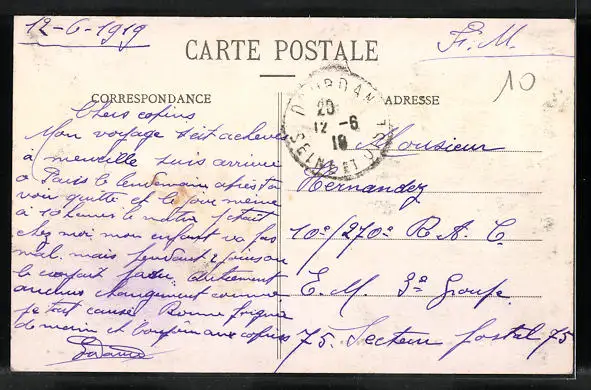 12-6-1919
F. M.
CARTE POSTALE
10
CORRESPONDANCE
ADRESSE
DOURDAN
20
12 -6
19
SEINE ET OISE
Chers copins
Mon voyage s'est achevé
à merveille suis arrivé
a Paris le lendemain après t'a
voir quitté et le jour meme
à 10 heures le matin j'étais
chez moi mon enfant va pas
mal. mais pendant
le Autrement
aucun changement comme
je t'ai causé Bonne
de main et aux copins
Monsieur
Hernandez
10e/270e R. A. C.
E. M. 3e Groupe
75. Secteur postal 75